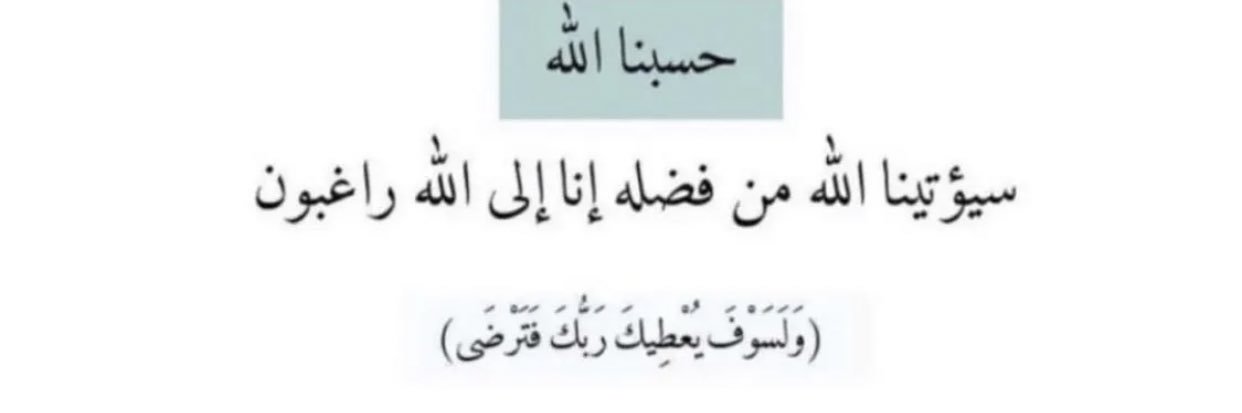 حسبنا الله
سيؤتينا الله من فضله إنا إلى الله راغبون
(وَلَسَوْفَ يُعْطِيكَ رَبُّكَ فَتَرْضَى)